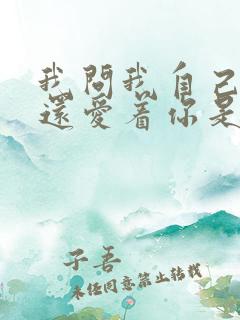 我問我自己
還愛着你是
子吾
未经同意禁止转载